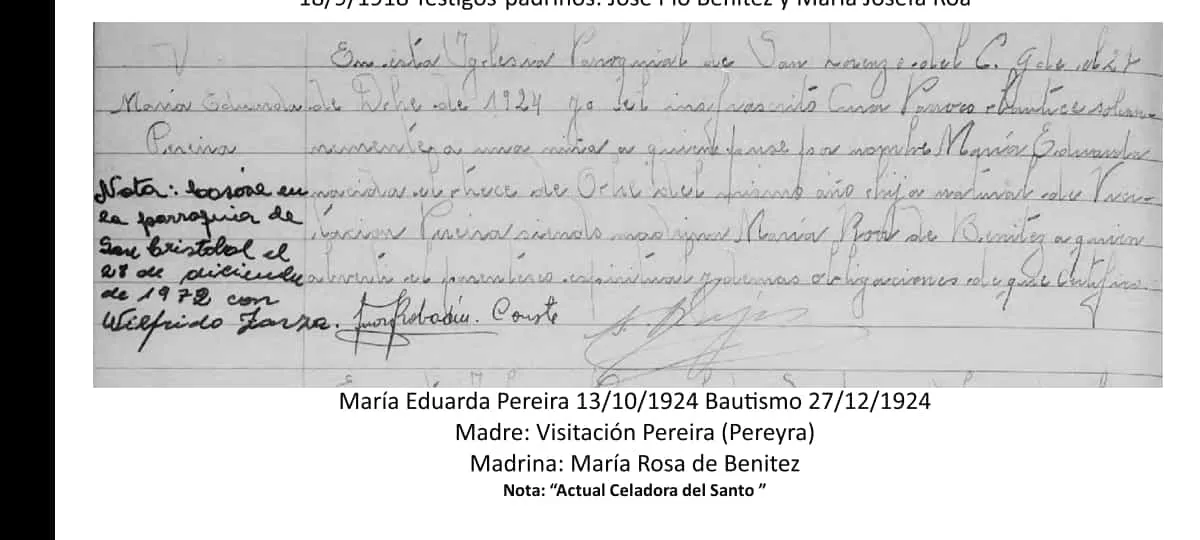 18/9/1918 Testigos padrinos: José Pio Benitez y María Josefa Roa
En esta Iglesia Parroquial de San Lorenzo del C. G de el 27
de de 1924 yo el infrascrito Cura Parroco bautice solem-
nemente a una niña a quien puse por nombre María Eduarda
nacida el trece de Oche del mismo año hija natural de Visi-
tacion Pereira siendo madrina María Rosa de Benitez a quien
adverti el parentesco espiritual y demas obligaciones de que Certifico.
María Eduarda
Pereira
Nota: casose en
la parroquia de
San Cristobal el
28 de diciembre
de 1972 con
Wilfrido Zarza.
Conste
María Eduarda Pereira 13/10/1924 Bautismo 27/12/1924
Madre: Visitación Pereira (Pereyra)
Madrina: María Rosa de Benitez
Nota: “Actual Celadora del Santo ”